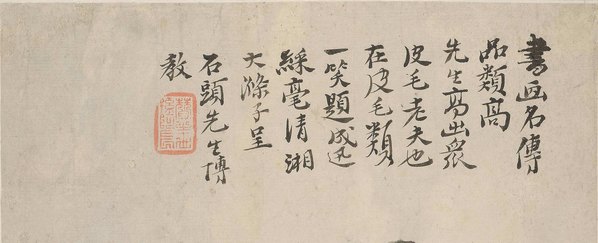 書画名傳
品類高
先生高出眾
皮毛老夫也
在皮毛類
一笑題成迅
綵毫清湘
大滌子呈
石頭先生博
教